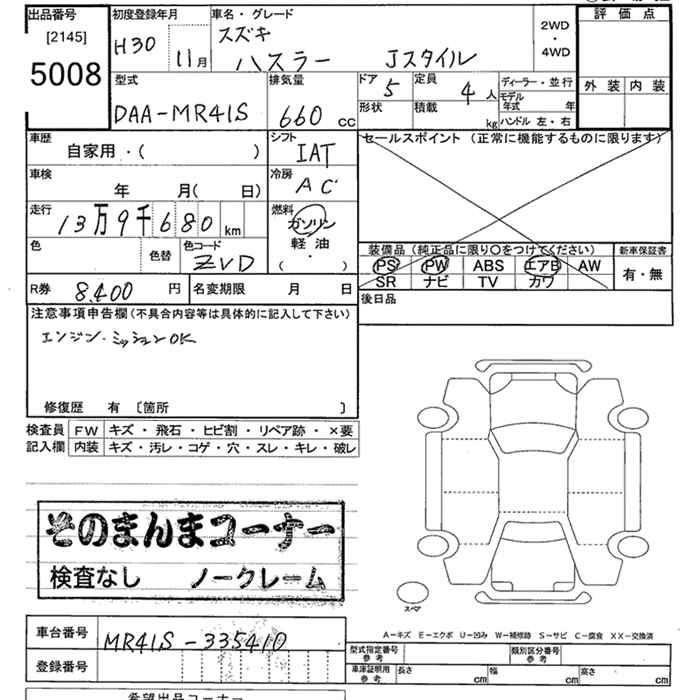 出品番号
[2145]
5008
初度登録年月
H30 11月
車名・グレード
スズキ
ハスラー Jスタイル
2WD
・
4WD
評価点
外装 内装
型式
DAA-MR41S
排気量
660 CC
ドア 5
形状
定員 4人
積載 kg
ディーラー・並行
モデル年式 年
ハンドル 左・右
車歴
自家用・( )
シフト
IAT
セールスポイント (正常に機能するものに限ります)
車検
年 月( 日)
冷房
AC
走行
13万9千680 km
燃料
ガソリン
軽油
( ・ )
色
色替
色コード
ZVD
装備品 (純正品に限り○をつけてください)
PS PW ABS エアB AW
SR ナビ TV カワ
新車保証書
有・無
R券 8,400 円
名変期限 月 日
後日品
注意事項申告欄 (不具合内容等は具体的に記入して下さい)
エンジン・ミッションOK
修復歴 有 〔箇所 〕
検査員記入欄
FW キズ・飛石・ヒビ割・リペア跡・×要
内装 キズ・汚レ・コゲ・穴・スレ・キレ・破レ
そのまんまコーナー
検査なし ノークレーム
スペア
車台番号 MR41S-335410
登録番号
A－キズ E－エクボ U－凹み W－補修跡 S－サビ C－腐食 XX－交換済
型式指定番号 参考
類別区分番号 参考
車庫証明用 参考
長さ cm 幅 cm 高さ cm
希望出品コーナー